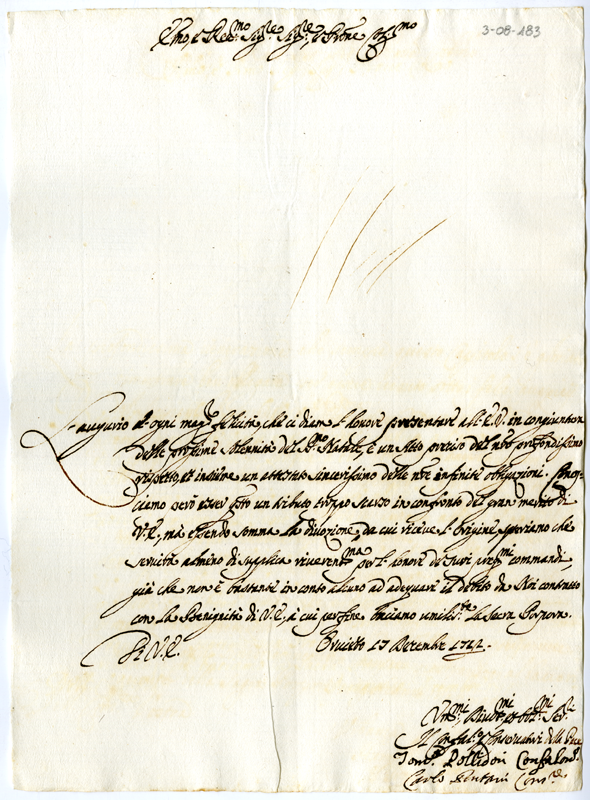 3-08-183
Emo, e Revmo Sigre Sigre, e Prone Colmo
L'augurio d'ogni magre felicità, che ci diam l'honore presentare all'E.V. in congiuntura
delle prossime solennità del S. Natale, è un atto preciso del nro profondissimo
rispetto, et insieme un attestato sincerissimo delle nre infinite obligazioni. Conos-
ciamo però esser questo un tributo troppo scarso in confronto del gran merito di
V.E., mà essendo somma la divozione, da cui riceve l'origine, speriamo che
servirà almeno di supplica riverentma per l'honore de suoi pregmi commandi
già che non è bastante in conto alcuno ad adequare il debito da Noi contratto
con la Benignità di V.E., à cui per fine baciamo umilte la Sacra Porpora.
Di V.E.
Decembre
Umi Divotmi et Obmi Servi
Il Confalre e Conservatori della Pace
Confalonre
Carlo Consre